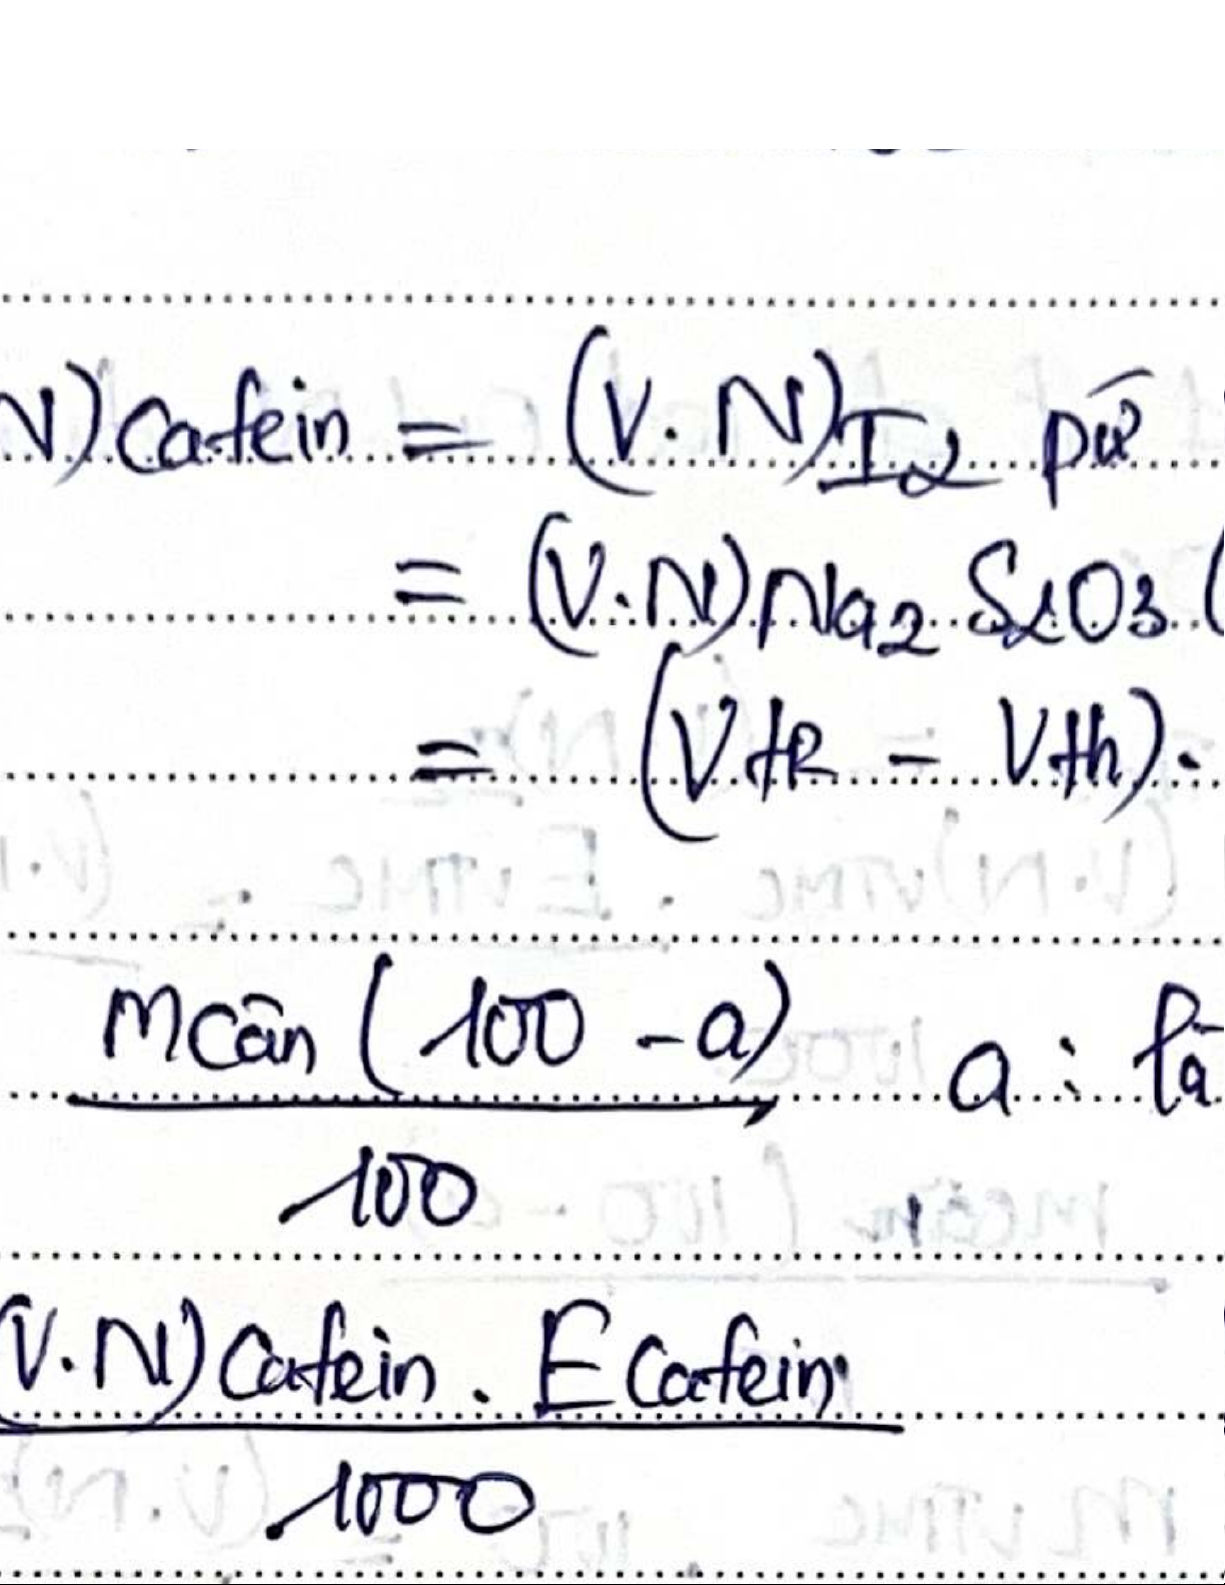 N) Cafein = (V.N) I2 pứ
= (V.N) Na2 S2O3 (
= (Vtr - Vth).
mcân (100 - a) a : là
100
(V.N) Cafein . E Cafein
1000